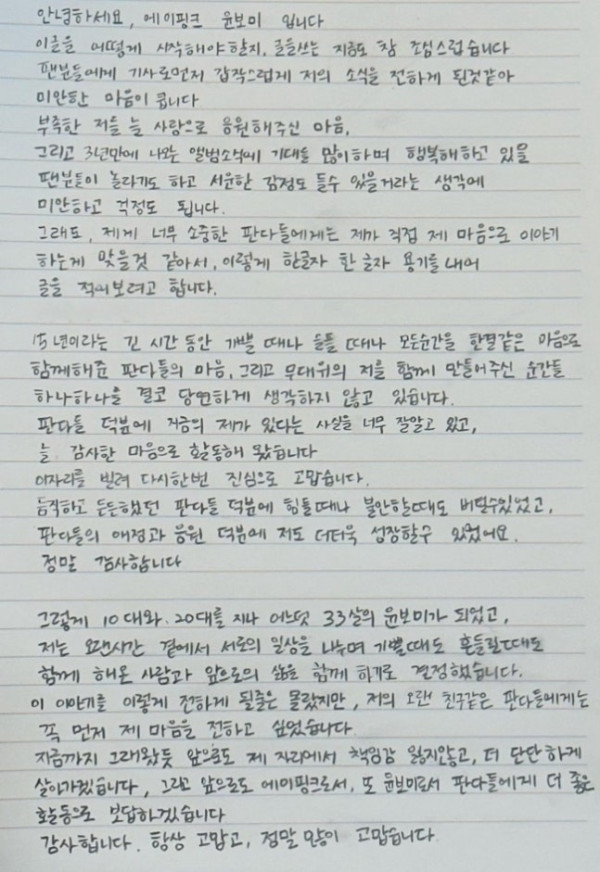 안녕하세요, 에이핑크 윤보미 입니다
이글을 어떻게 시작해야할지, 글을쓰는 지금도 참 조심스럽습니다
팬분들에게 기사로먼저 갑작스럽게 저의 소식을 전하게 된것같아
미안한 마음이 큽니다
부족한 저를 늘 사랑으로 응원해주신 마음,
그리고 3년만에 나오는 앨범소식에 기대를 많이하며 행복해하고 있을
팬분들이 놀라기도 하고 서운한 감정도 들수 있을거라는 생각에
미안하고 걱정도 됩니다.
그래도, 제게 너무 소중한 판다들에게는 제가 직접 제 마음으로 이야기
하는게 맞을것 같아서, 이렇게 한글자 한 글자 용기를 내어
글을 적어보려고 합니다.
15년이라는 긴 시간동안 기쁠 때나 슬플 때나 모든순간을 한결같은 마음으로
함께해준 판다들의 마음, 그리고 무대위의 저를 함께 만들어주신 순간들
하나하나를 결코 당연하게 생각하지 않고 있습니다.
판다들 덕분에 지금의 제가 있다는 사실을 너무 잘알고 있고,
늘 감사한 마음으로 활동해 왔습니다
이자리를 빌려 다시한번 진심으로 고맙습니다.
듬직하고 든든했던 판다들 덕분에 힘들때나 불안할때도 버틸수있었고,
판다들의 애정과 응원 덕분에 저도 더더욱 성장할수 있었어요.
정말 감사합니다
그렇게 10대와 20대를 지나 어느덧 33살의 윤보미가 되었고,
저는 오랜시간 곁에서 서로의 일상을 나누며 기쁠때도 흔들릴때도
함께 해온 사람과 앞으로의 삶을 함께 하기로 결정했습니다.
이 이야기를 이렇게 전하게 될줄은 몰랐지만, 저의 오랜 친구같은 판다들에게는
꼭 먼저 제 마음을 전하고 싶었습니다.
지금까지 그래왔듯 앞으로도 제 자리에서 책임감 잃지않고, 더 단단하게
살아가겠습니다, 그리고 앞으로도 에이핑크로서, 또 윤보미로서 판다들에게 더 좋은
활동으로 보답하겠습니다
감사합니다. 항상 고맙고, 정말 많이 고맙습니다.